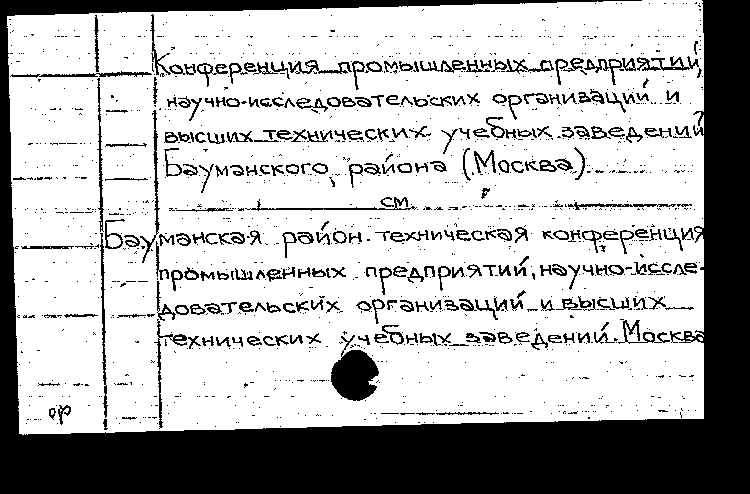 Конференция промышленных предприятий,
научно-исследовательских организаций и
высших технических учебных заведений
Бауманского района (Москва)
см
Бауманская район. техническая конференция
промышленных предприятий, научно-иссле-
довательских организаций и высших
технических учебных заведений. Москва
ор